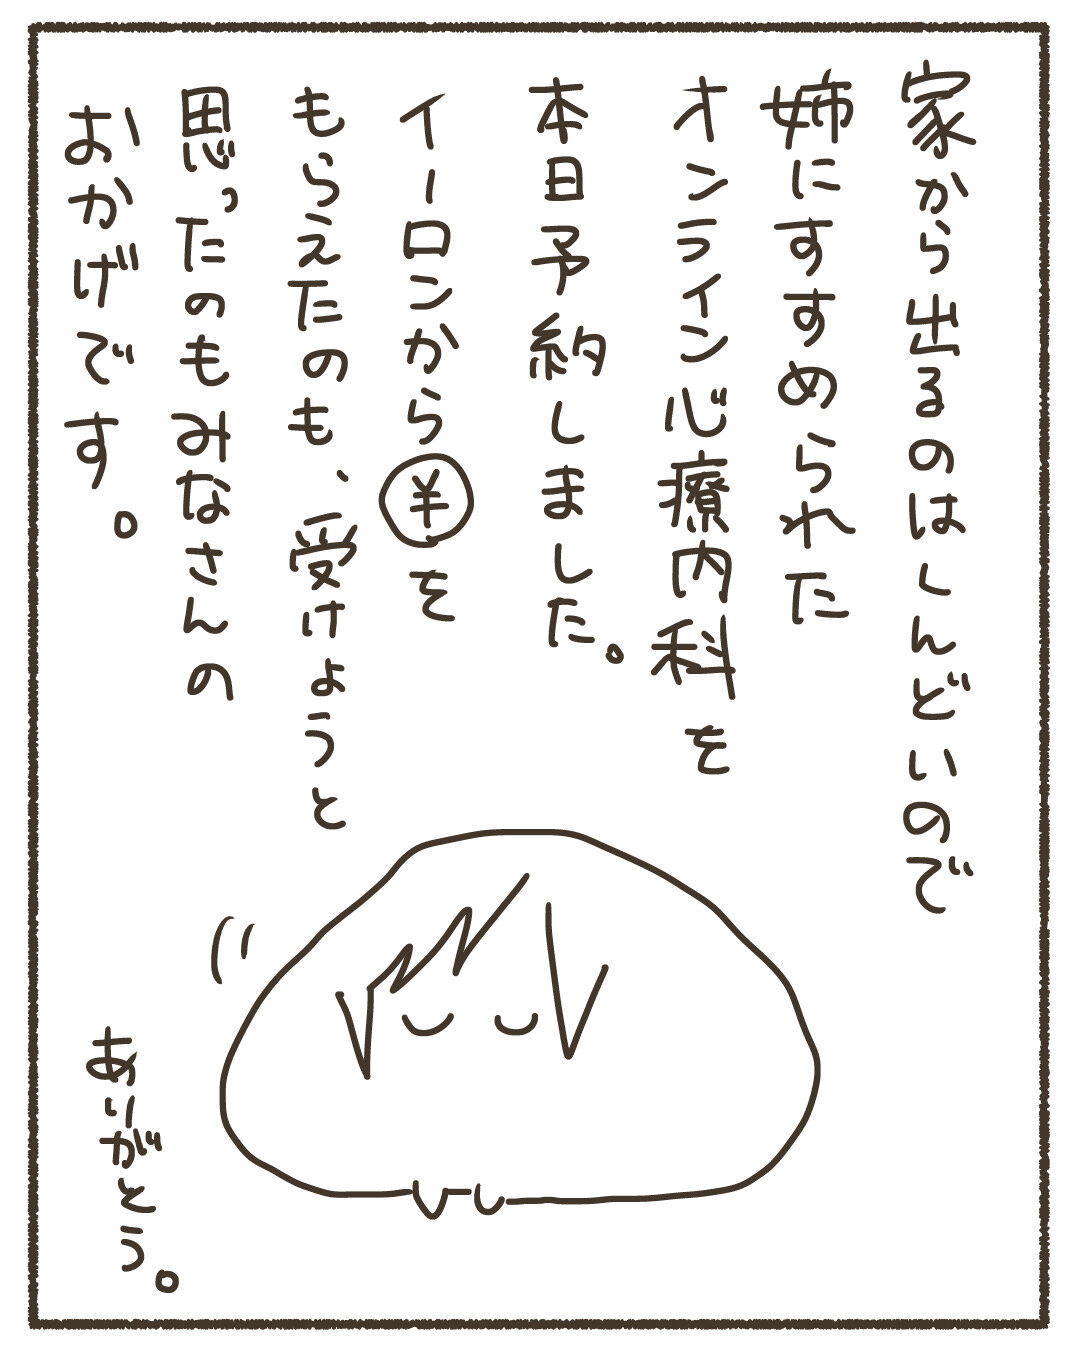 家から出るのはしんどいので
姉にすすめられた
オンライン心療内科を
本日予約しました。
イーロンから¥を
もらえたのも、受けようと
思ったのもみなさんの
おかげです。
ありがとう。